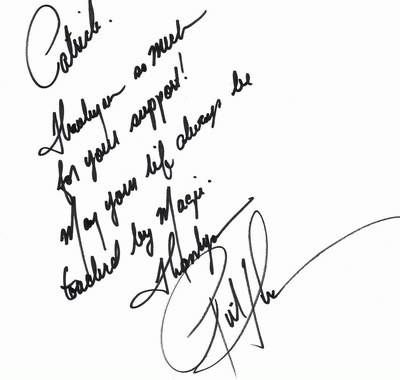 Catrick.
Thankyou so much
for your support!
May your life always be
touched by Magic.
Thankyou